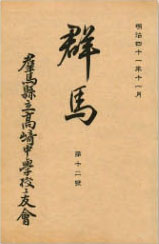 明治四十一年十一月
群馬
第十二號
羣馬縣立高崎中學校々友會